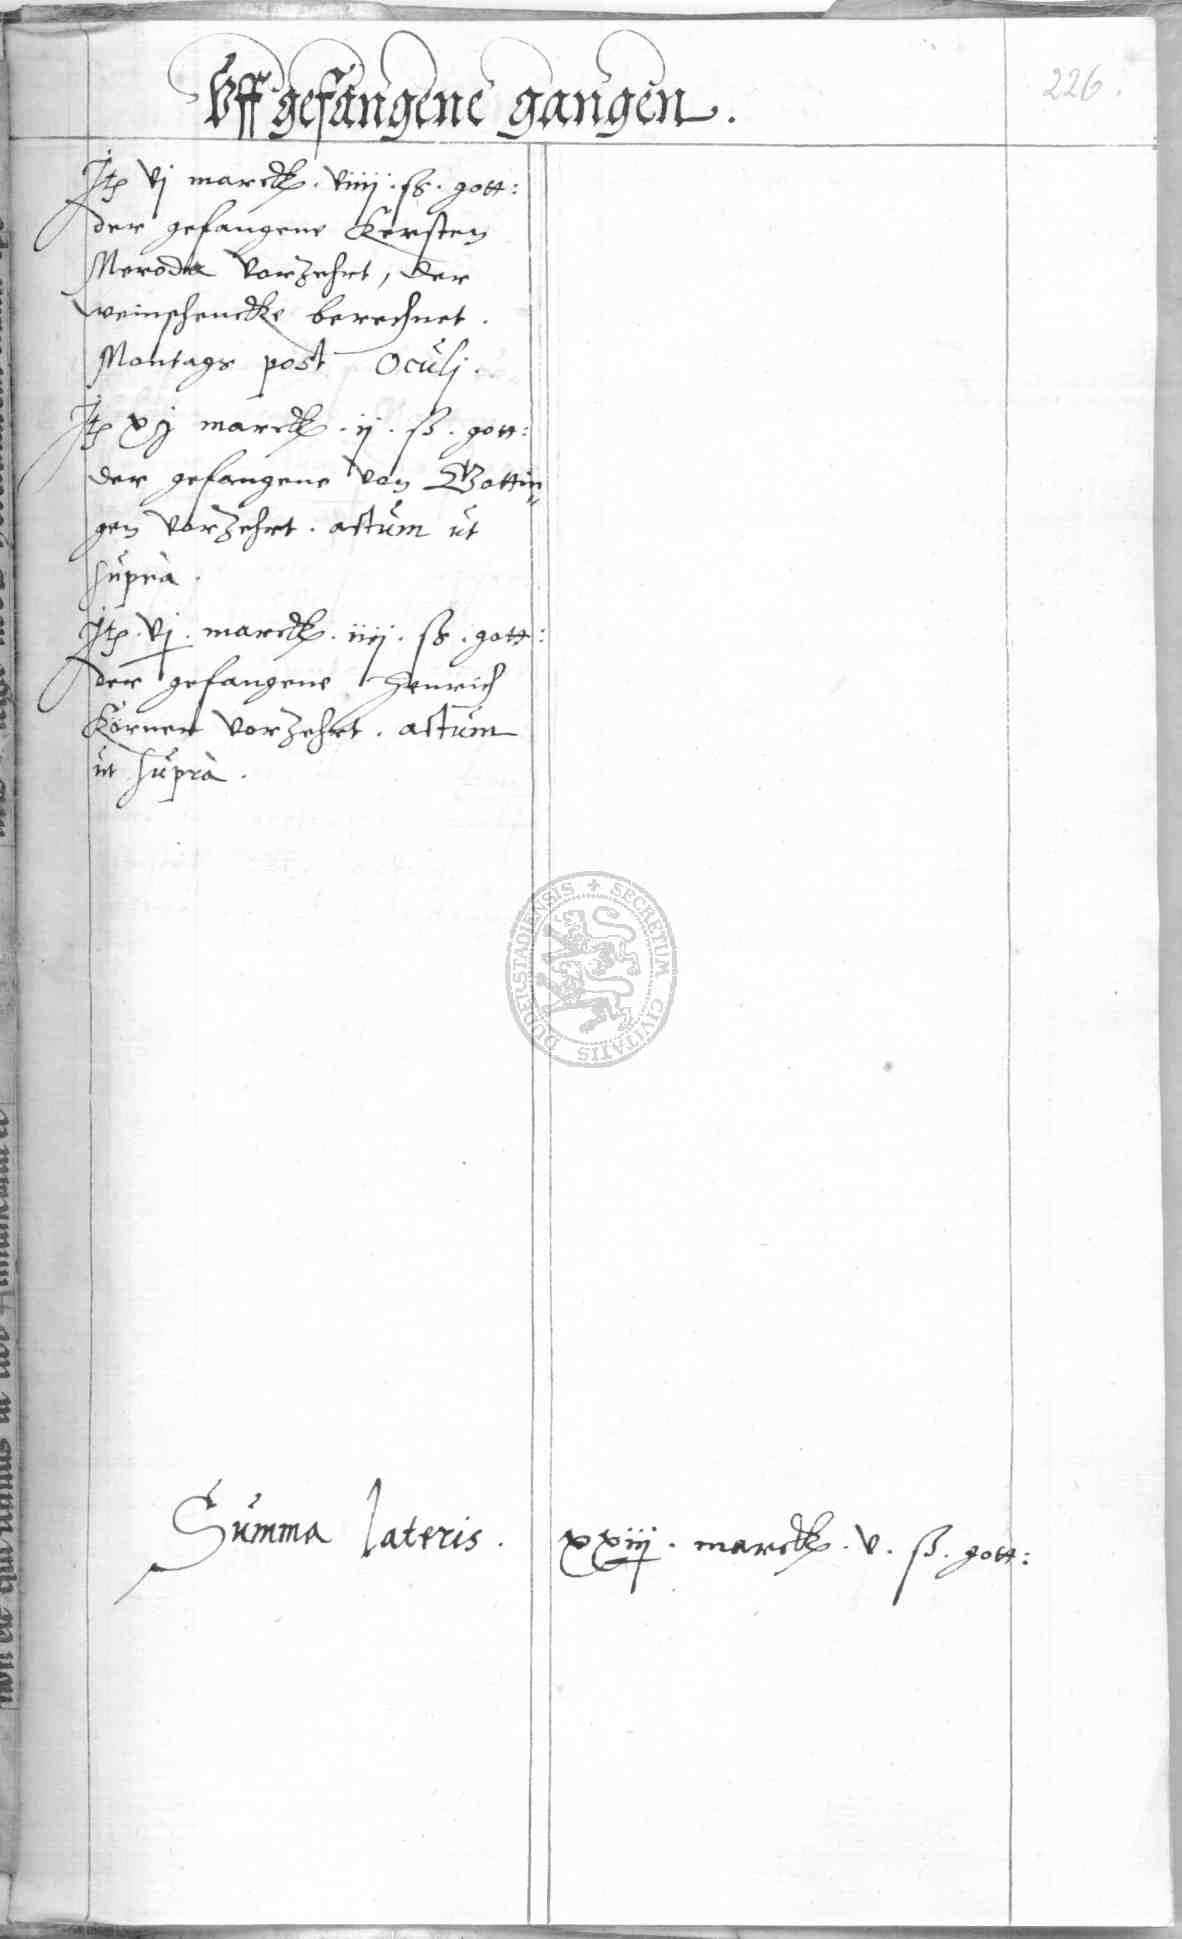 Vff gefangene gangen.
226.
Itē vj marck. viiij. ß. gott:
der gefangene Kersten
Merode vorzehrt, der
weinschencke berechnet.
Montags post Oculj.
Itē xj marck. ij. ß. gott:
der gefangene von Gottin„
gen vorzehrt. actum ut
suprà.
Itē. vj. marck. iiij. ß. gott:
der gefangene Henrich
Körner vorzehrt. actum
ut suprà.
DUDERSTADIENSIS + SECRETUM CIVITATIS
Summa lateris. xxiij. marck. v. ß. gott: